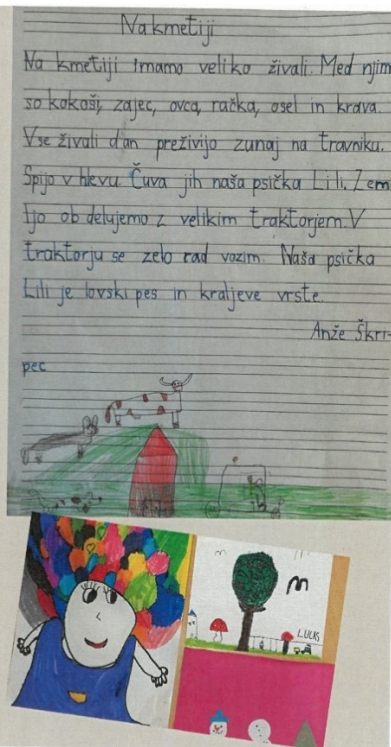 Na kmetiji
Na kmetiji imamo veliko živali. Med njim
so kokoši, zajec, ovca, račka, osel in krava.
Vse živali dan preživijo zunaj na travniku.
Spijo v hlevu. Čuva jih naša psička Lili. Zem
ljo ob delujemo z velikim traktorjem. V
traktorju se zelo rad vozim. Naša psička
Lili je lovski pes in kraljeve vrste.
Anže Škri-
pec
LUKS